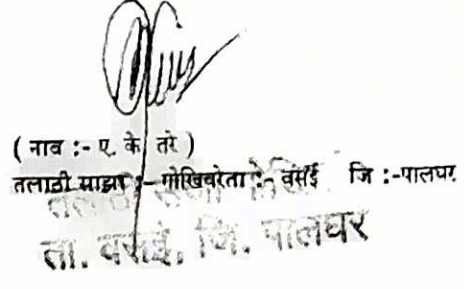 ( नाव :- ए. के तरे )
तलाठी साझा :- गोखिवरे ता :- वसई जि :-पालघर
ता. वसई, जि. पालघर